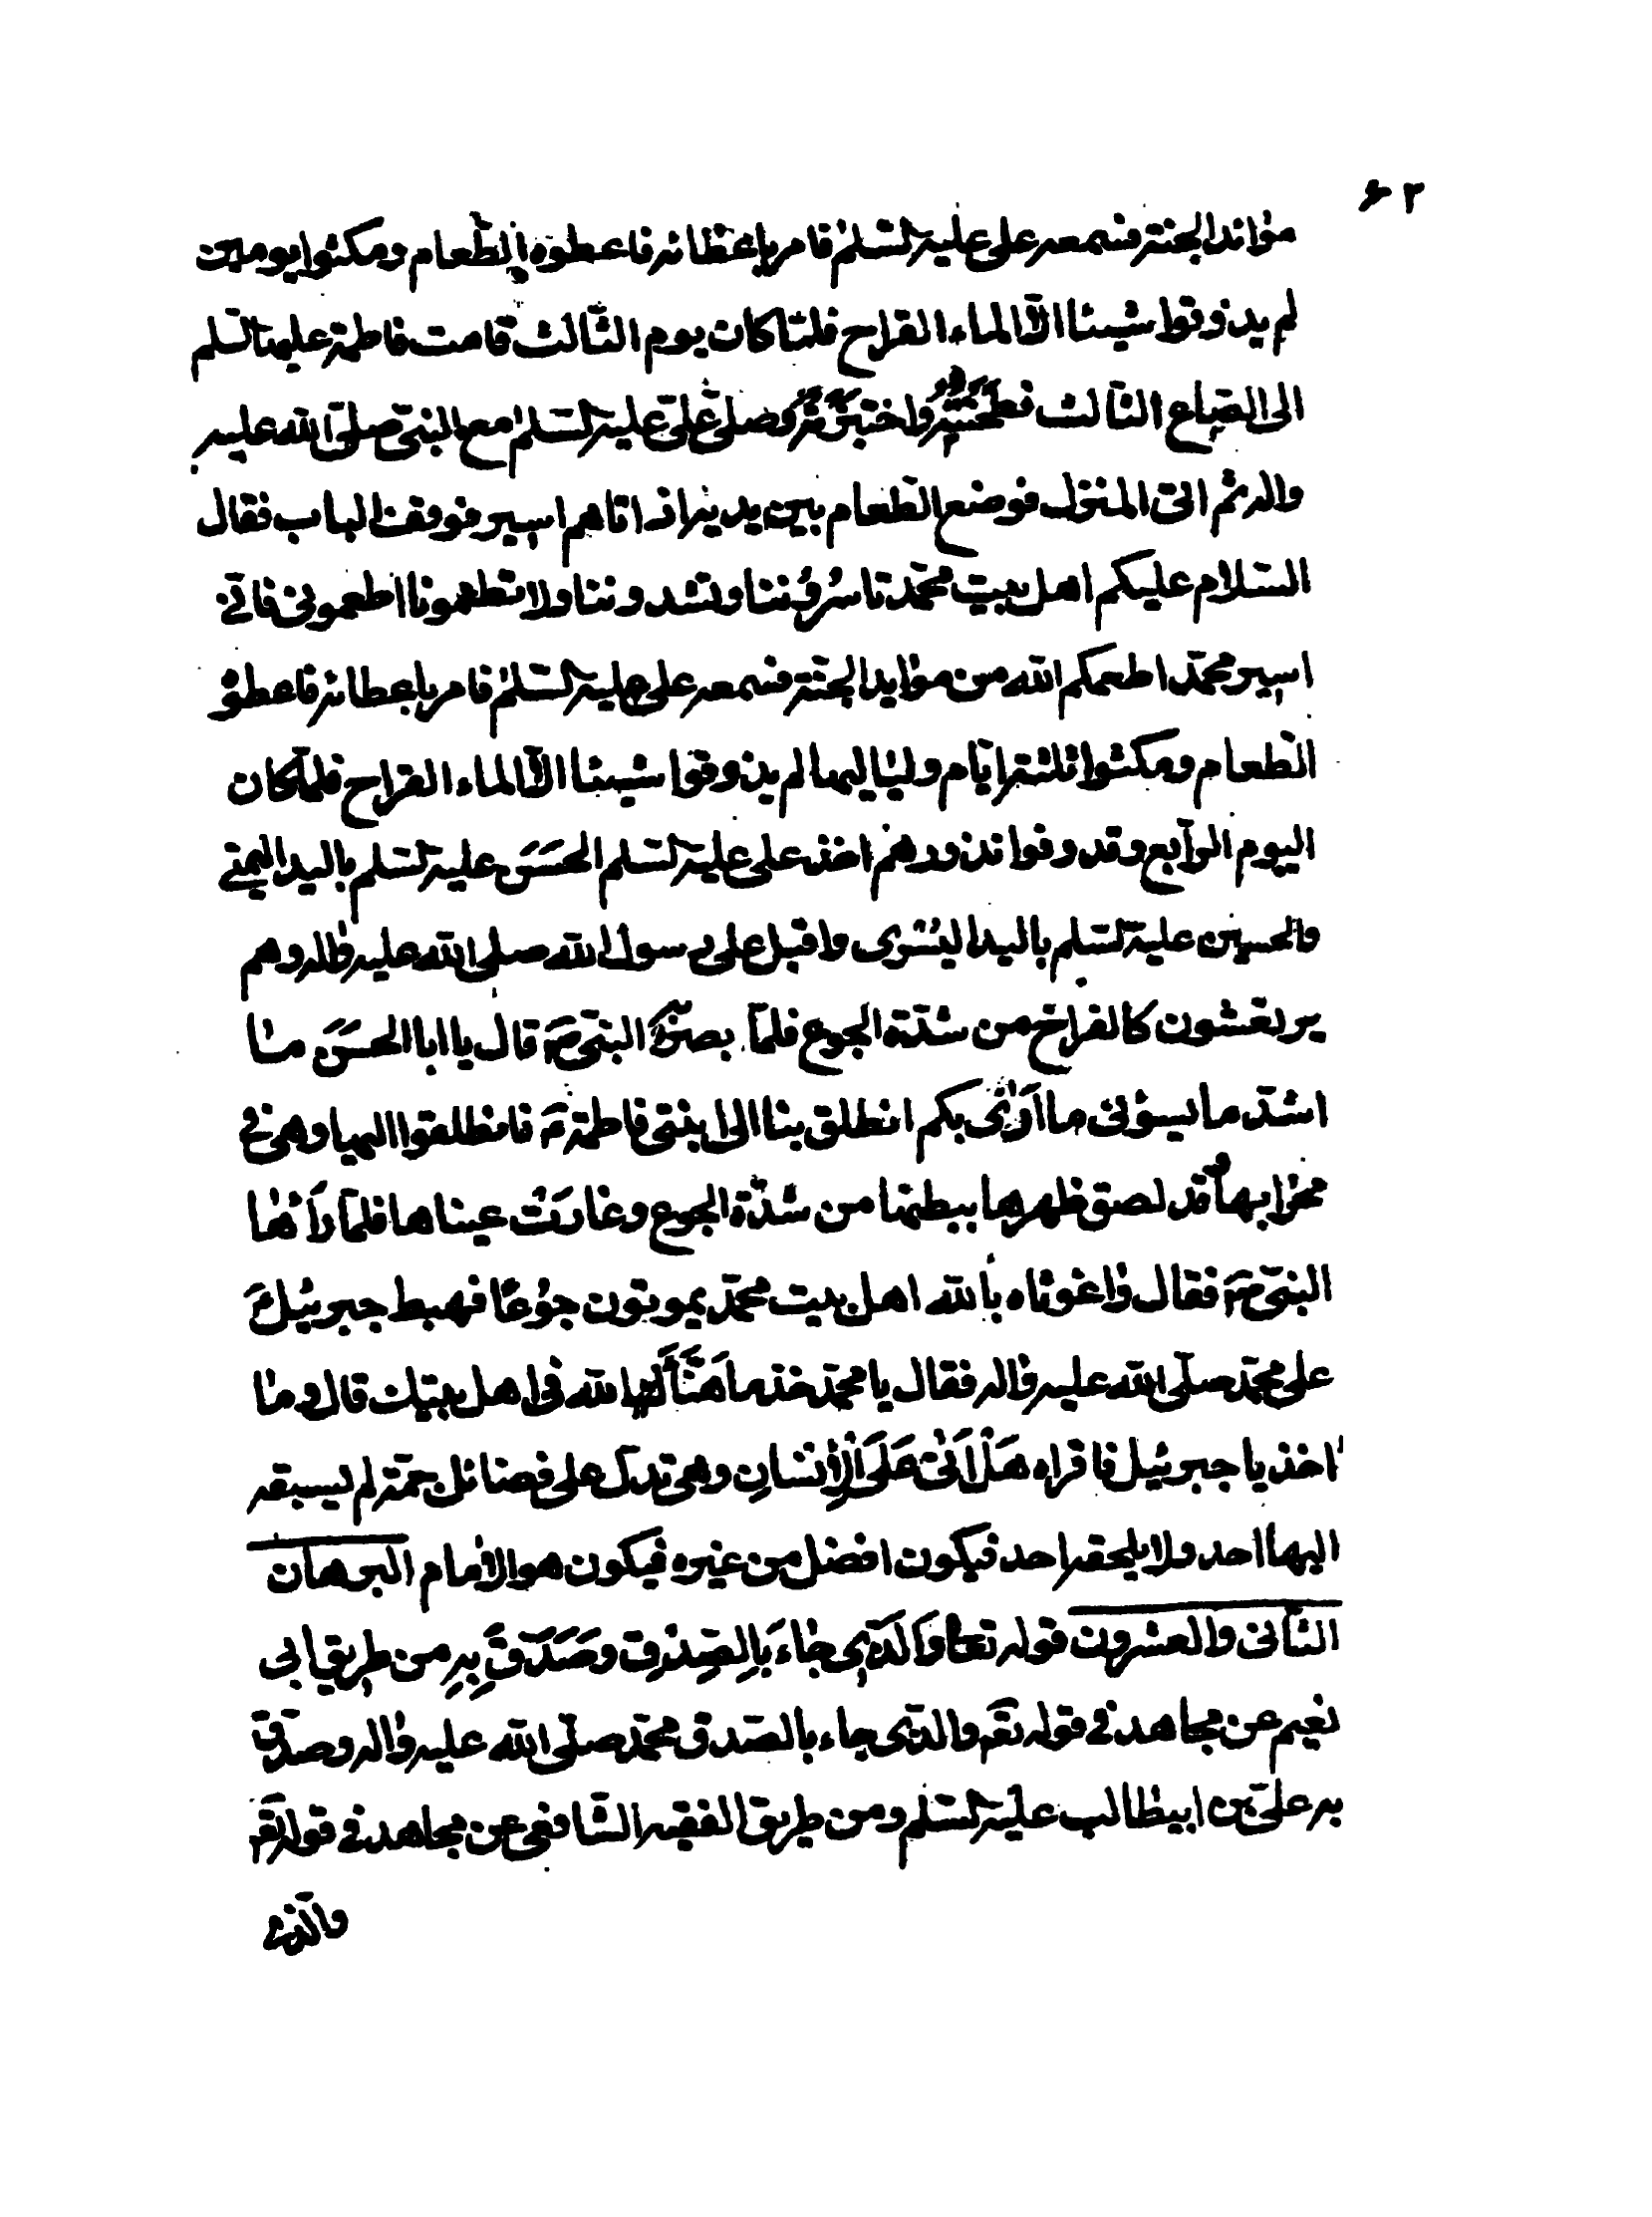 ۶۲
موائد الجنة فسمعه علی علیه السلم فامر باعطائه فاعطوه الطعام ومکثوا یومین
لم یذوقوا شیئا الا الماء القراح فلما کان یوم الثالث قامت فاطمة علیها السلم
الی الصاع الثالث فطحنته واختبزته وصلی علی علیه السلم مع النبی صلی الله علیه
واله ثم اتی المنزل فوضع الطعام بین یدیه اذ اتاهم اسیر فوقف الباب فقال
السلام علیکم اهل بیت محمد تاسروننا وتشدوننا ولا تطعمونا اطعمونی فانی
اسیر محمد اطعمکم الله من موايد الجنة فسمعه علی علیه السلم فامر باعطائه فاعطوه
الطعام ومکثوا ثلثة ایام ولیالیها لم یذوقوا شیئا الا الماء القراح فلما کان
الیوم الرابع وقد وفوا نذورهم اخذ علی علیه السلم الحسن علیه السلم بالید الیمنی
والحسین علیه السلم بالید الیسری واقبل علی رسول الله صلی الله علیه واله وهم
یرتعشون کالفراخ من شدة الجوع فلما بصر النبی ص قال یا ابا الحسن ما
اشد ما یسؤنی ما اری بکم انطلق بنا الی ابنتی فاطمة ع فانطلقوا الیها وهی فی
محرابها وقد لصق ظهرها ببطنها من شدة الجوع وغارت عیناها فلما راها
النبی ص فقال واغوثاه بالله اهل بیت محمد یموتون جوعا فهبط جبرئیل ع
علی محمد صلی الله علیه واله فقال یا محمد خذ ما هنأ الله فی اهل بیتک قال وما
اخذ یا جبرئیل فاقراه هَلْ اَتٰی عَلَی الْاِنْسانِ وهی تدل علی فضائل جمة لم یسبقه
الیها احد ولا یلحقه احد فیکون افضل من غیره فیکون هو الامام البرهان
الثانی والعشرون قوله تعا وَالَّذی جاءَ بِالصِّدْقِ وَصَدَّقَ بِهِ من طریق ابی
نعیم عن مجاهد فی قوله تع والذی جاء بالصدق محمد صلی الله علیه واله وصدق
به علی بن ابیطالب علیه السلم ومن طریق الفقیه الشافعی عن مجاهد فی قوله تع
والذی